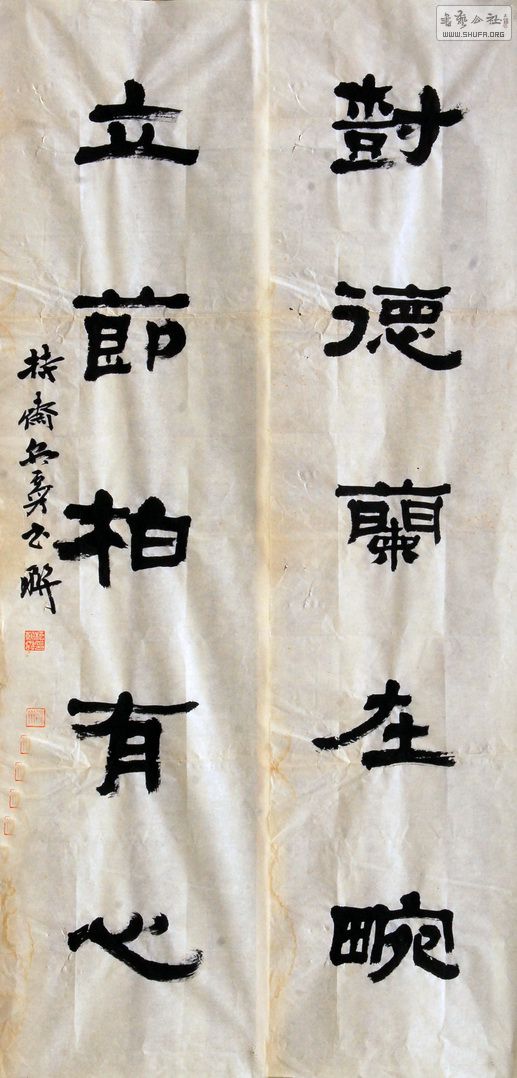 樹德蘭在畹
立節柏有心
書聯
書藝公社
WWW.SHUFA.ORG